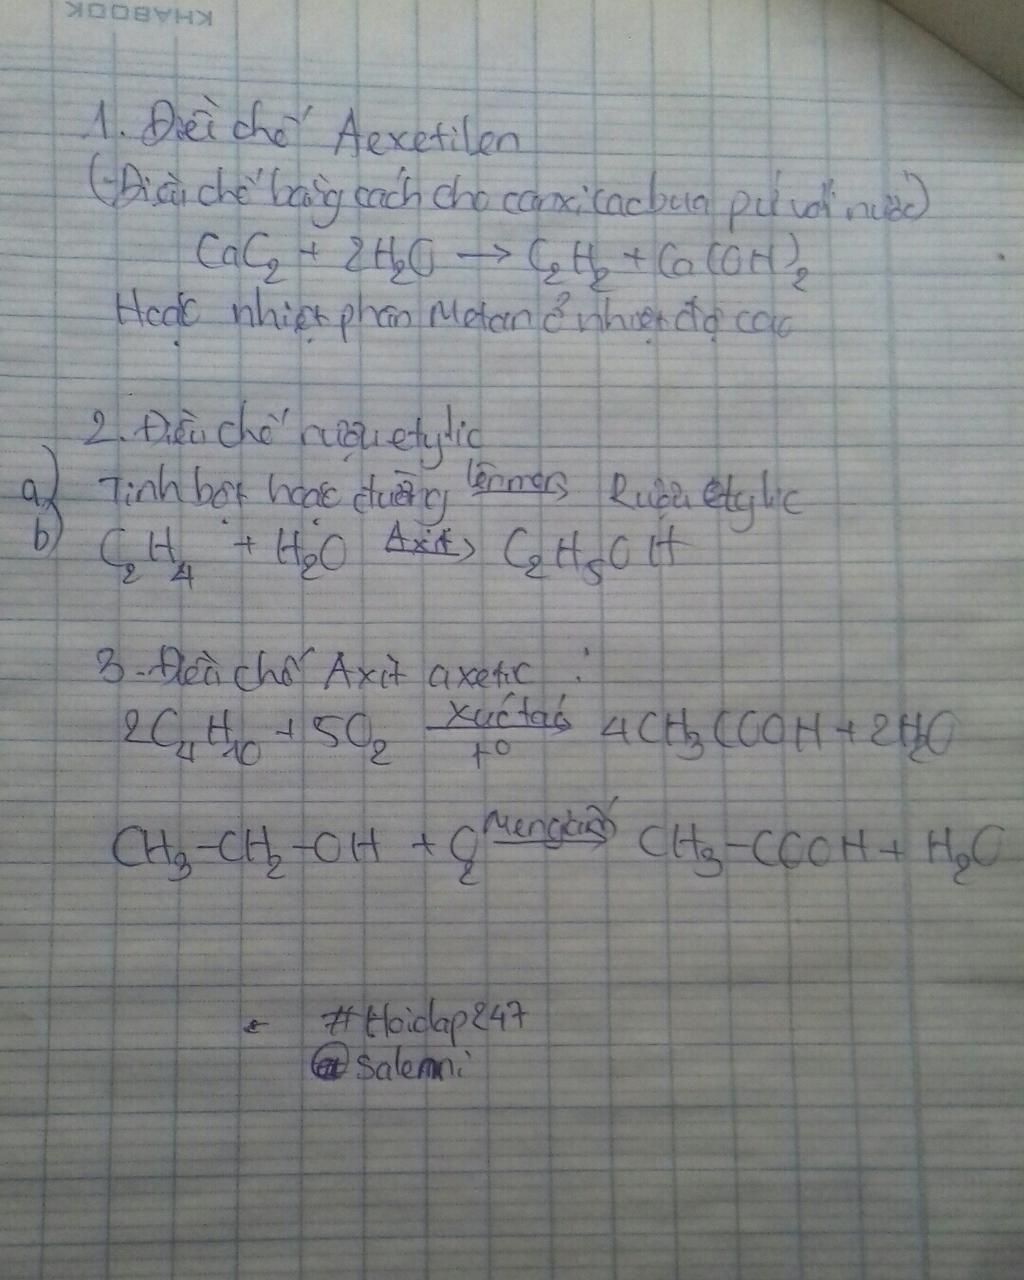 KHABOOK
1. Điều chế Aexetilen
(-Điều chế bằng cách cho canxicacbua pứ với nước)
CaC2 + 2H2O → C2H2 + Ca(OH)2
Hoặc nhiệt phân Metan ở nhiệt độ cao
2. Điều chế rượu etylic
a) Tinh bột hoặc đường lênmen→ Rượu etylic
b) C2H4 + H2O Axit→ C2H5OH
3. Điều chế Axit axetic :
2C4H10 + 5O2 xúc tác→ t° 4CH3COOH + 2H2O
CH3-CH2-OH + O2 Mengiấm→ CH3-COOH + H2O
#Hoidap247
@Salemni